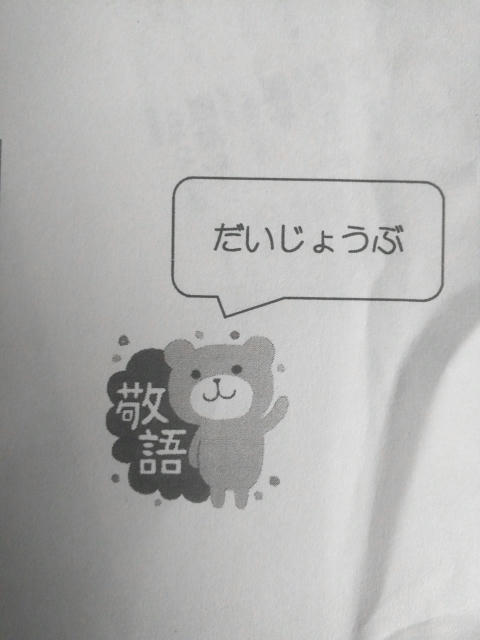 だいじょうぶ
敬
語